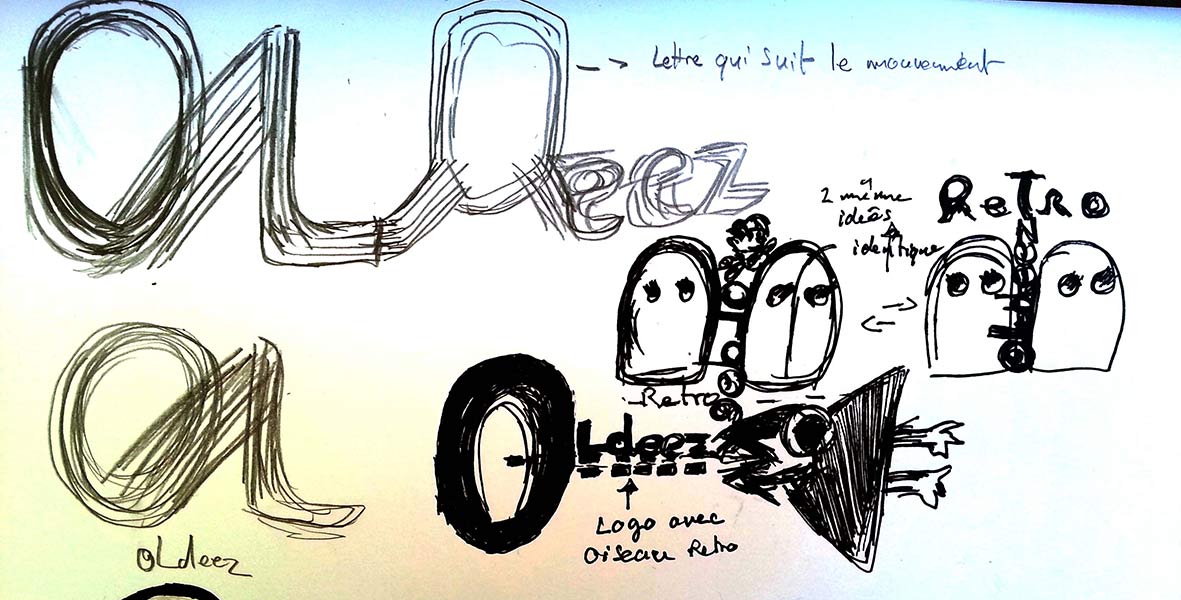 OLDeez
Lettre qui suit le mouvement
2 même
idées
identique
ReTro
Retro
OLdeez
Logo avec
Oiseau Retro
OLdeez